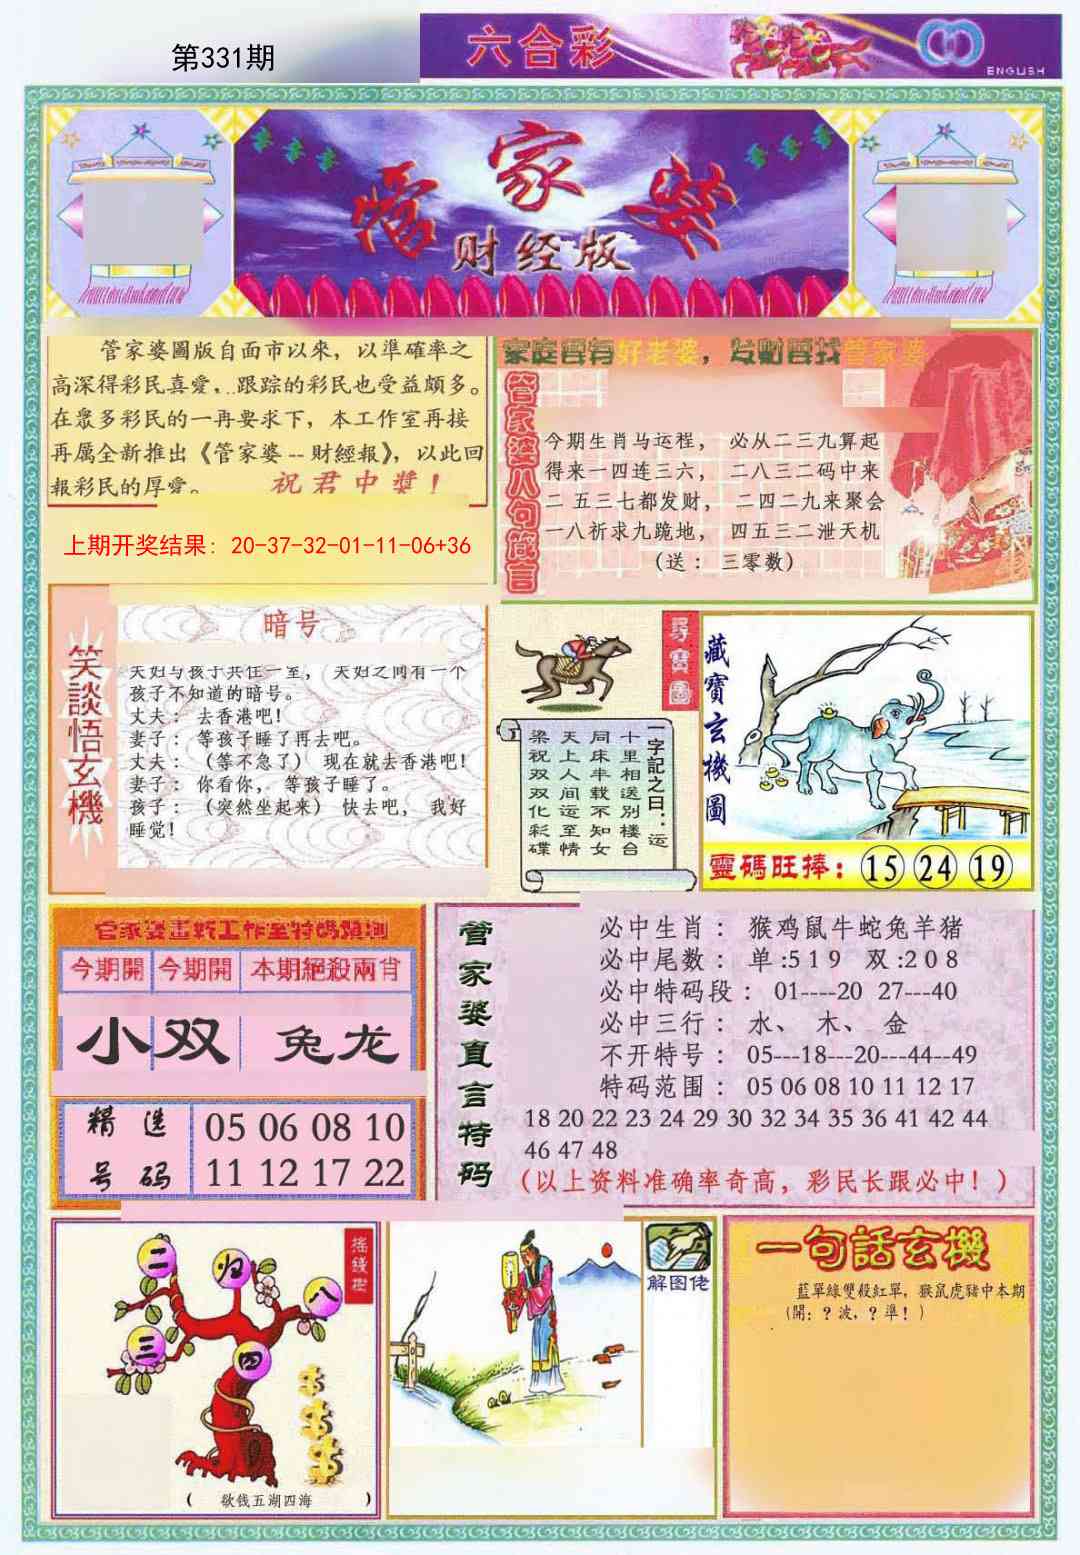 第331期
六合彩
ENGLISH
管家婆
财经版
管家婆圖版自面市以來，以準確率之
高深得彩民真愛，..跟踪的彩民也受益頗多。
在眾多彩民的一再要求下，本工作室再接
再厲全新推出《管家婆--財經報》，以此回
報彩民的厚愛。 祝君中獎！
上期开奖结果：20-37-32-01-11-06+36
家庭要有好老婆，发财要找管家婆
管家婆八句箴言
今期生肖马运程， 必从二三九算起
得来一四连三六， 二八三二码中来
二五三七都发财， 二四二九来聚会
一八祈求九跪地， 四五三二泄天机
（送：三零数）
笑談悟玄機
暗号
夫妇与孩子共住一室， 夫妇之间有一个
孩子不知道的暗号。
丈夫：去香港吧！
妻子：等孩子睡了再去吧。
丈夫：（等不急了） 现在就去香港吧！
妻子：你看你，. 等孩子睡了。
孩子：（突然坐起来） 快去吧， 我好
睡觉！
尋寶圖
一字記之曰：运
十里相送别楼台
同床半载不知女
天上人间运至情
梁祝双双化彩碟
藏寶玄機圖
靈碼旺捧：15 24 19
管家婆畫軒工作室特碼預測
今期開 今期開 本期絕殺兩肖
小 双 兔龙
精选号码
05 06 08 10
11 12 17 22
管家婆直言特码
必中生肖： 猴鸡鼠牛蛇兔羊猪
必中尾数： 单:519 双:208
必中特码段： 01----20 27---40
必中三行： 水、 木、 金
不开特号： 05---18---20---44--49
特码范围： 05 06 08 10 11 12 17
18 20 22 23 24 29 30 32 34 35 36 41 42 44
46 47 48
（以上资料准确率奇高，彩民长跟必中！）
搖錢樹
二 归 八
三 四
（ 欲钱五湖四海 ）
解图佬
一句話玄機
藍單綠雙殺紅單，猴鼠虎豬中本期
（開：？波，？準！）